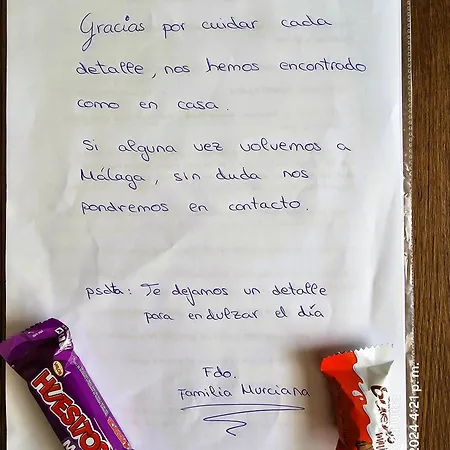 Gracias por cuidar cada
detalle, nos hemos encontrado
como en casa.
Si alguna vez volvemos a
Málaga, sin duda nos
pondremos en contacto.
psdta: Te dejamos un detalle
para endulzar el día
Fdo.
Familia Murciana
HUESITOS
2024 4:21 p. m.